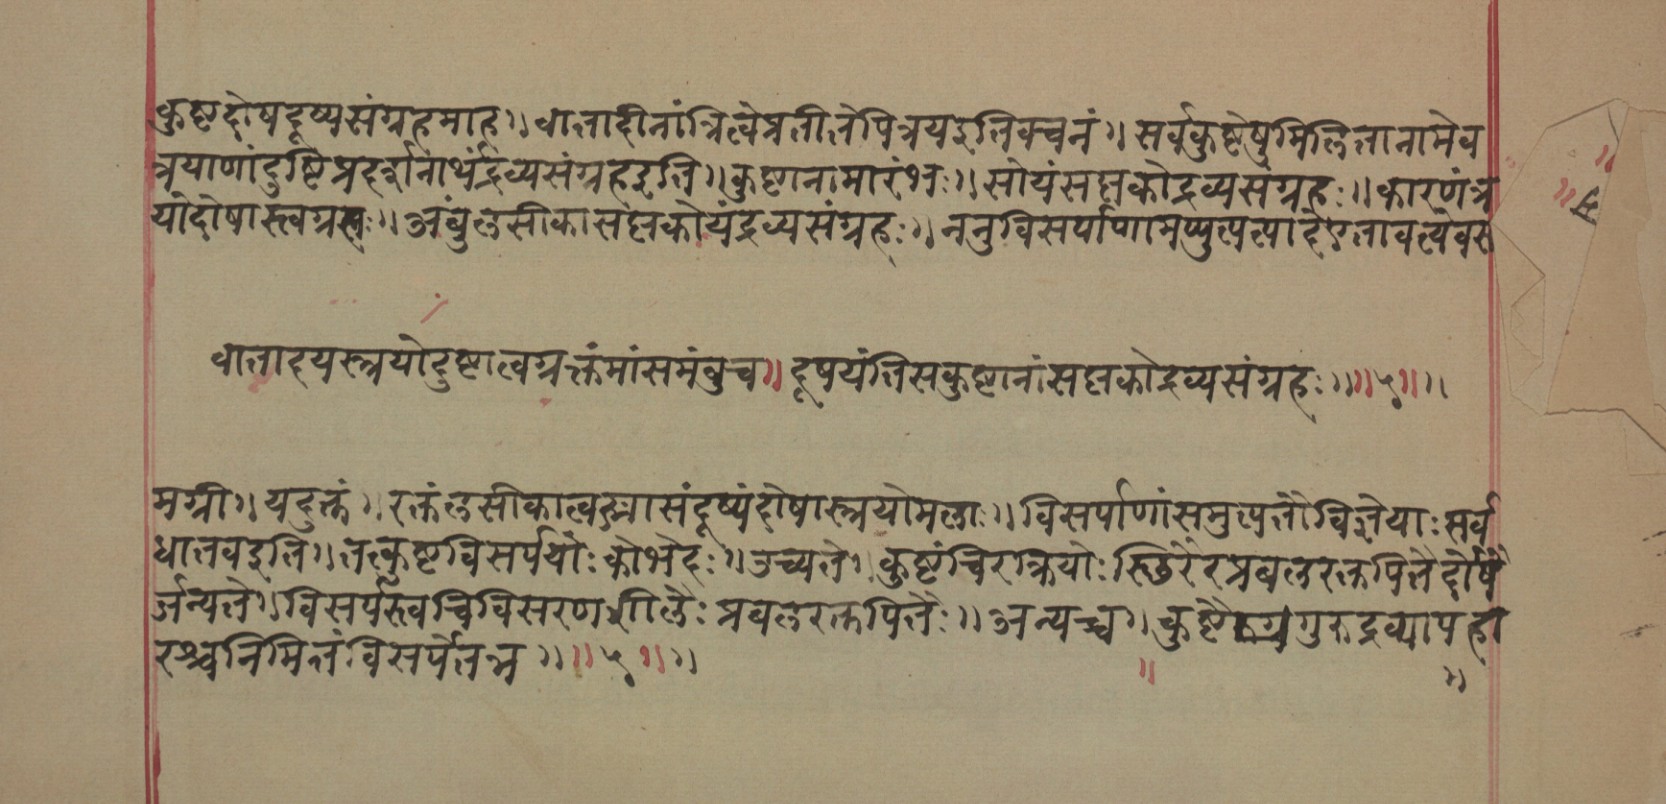 कुष्टदोषदूष्यसंग्रहमाह॥ वातादीनांत्रित्वेप्रतीतेपित्रयइतिवचनं॥ सर्वकुष्टेषुमिलितानामेव
त्रयाणांदुष्टिप्रदर्शनार्थंद्रव्यसंग्रहइति॥ कुष्टानामारंभः॥ सोयंसप्तकोद्रव्यसंग्रहः॥ कारणंत्र
योदोषास्त्वग्रक्तः॥ अंबुलसीकासप्तकोयंद्रव्यसंग्रहः॥ ननुविसर्पाणामप्युत्पत्पादेएतावत्येवस
वातादयस्त्रयोदुष्टात्वग्रक्तंमांसमंबुच॥ दूषयंतिसकुष्टानांसप्तकोद्रव्यसंग्रहः॥॥५॥॥
मग्री॥ यदुक्तं॥ रक्तंलसीकात्वङ्मासंदूष्यंदोषास्त्रयोमलाः॥ विसर्पाणांसमुत्पतौविज्ञेयाःसर्व
धातवइति॥ तत्कुष्टविसर्पयोःकोभेदः॥ उच्यते॥ कुष्टंचिरक्रियोःस्थिरैरप्रबलरक्तपितैर्दोषै
र्जन्यते॥ विसर्पस्त्वचिविसरणशीलैः प्रबलरक्तपितैः॥ अन्यच्च॥ कुष्टे गुरुद्रव्यापहा
रश्चनिमित्तंविसर्पेतन्न॥॥५॥॥